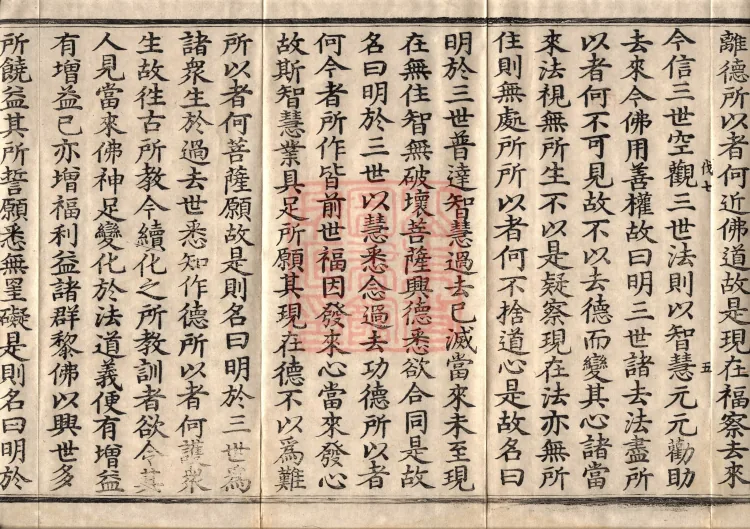 離德所以者何近佛道故是現在福察去來
伐七
五
今信三世空觀三世法則以智慧元元勸助
去來今佛用善權故曰明三世諸去法盡所
以者何不可見故不以去德而變其心諸當
來法視無所生不以是疑察現在法亦無所
住則無處所所以者何不捨道心是故名曰
明於三世普達智慧過去已滅當來未至現
在無住智無破壞菩薩興德悉欲合同是故
名曰明於三世以慧悉念過去功德所以者
何今者所作皆前世福因發來心當來發心
故斯智慧業具足所願其現在德不以為難
所以者何菩薩願故是則名曰明於三世為
諸衆生於過去世悉知作德所以者何護衆
生故往古所教今續化之所教訓者欲令其
人見當來佛神足變化於法道義便有增益
有增益已亦增福利益諸群黎佛以興世多
所饒益其所誓願悉無罣礙是則名曰明於